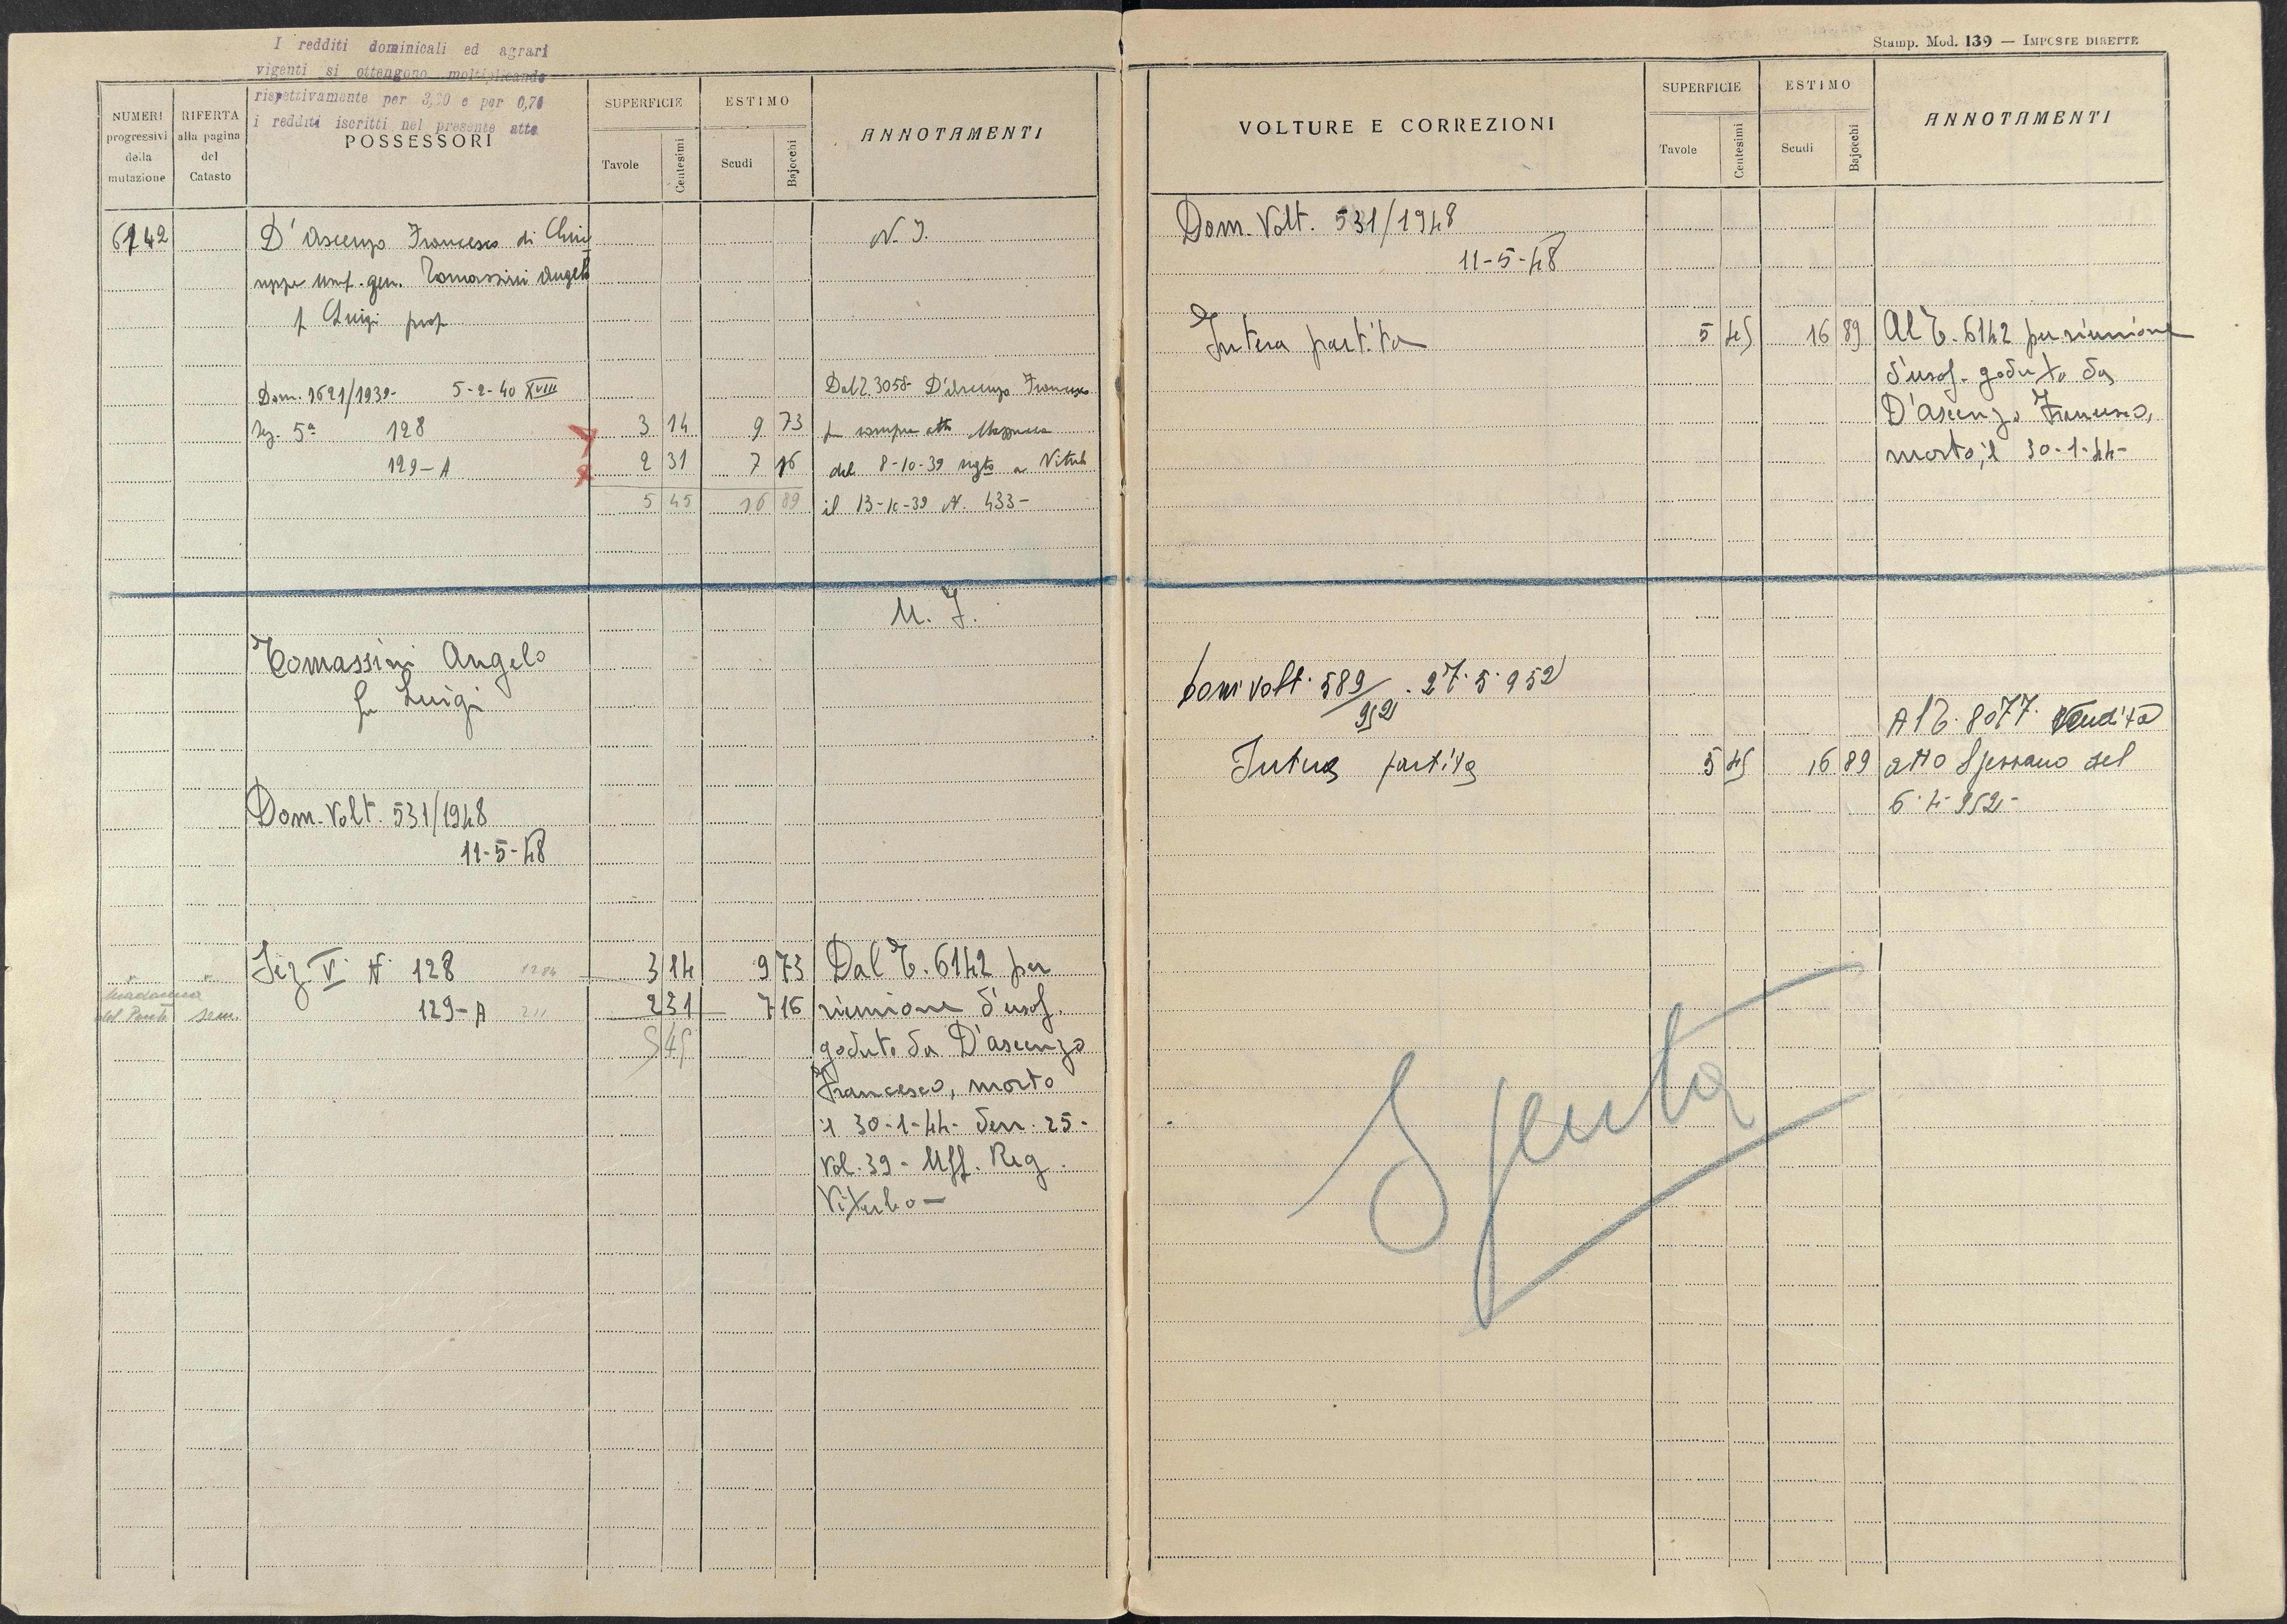 I redditi dominicali ed agrari
vigenti si ottengono moltiplicando
rispettivamente per 3,20 e per 0,70
i redditi iscritti nel presente atto
NUMERI progressivi della mutazione
RIFERTA alla pagina del Catasto
POSSESSORI
SUPERFICIE
Tavole
Centesimi
ESTIMO
Scudi
Bajocchi
ANNOTAMENTI
6142
D'Ascenzo Francesco di
Tomassini Angelo
f Luigi prop
N. I.
Dom. 1621/1939- 5-2-40 XVIII
Sez. 5ª 128 3 14 9 73
129-A 2 31 7 16
5 45 16 89
Dal T. 3058- D'Ascenzo Francesco
p compra atto
del 8-10-39 regto a Viterb
il 13-10-39 N. 433-
U. I.
Tomassini Angelo
fu Luigi
Dom. Volt. 531/1948
11-5-48
Madonna
del Ponte sem.
Sez. V. N. 128 3 14 9 73
129-A 2 31 7 16
5 45
Dal T. 6142 per
riunione d'usuf.
goduto da D'Ascenzo
Francesco, morto
il 30-1-44- Den. 25-
Vol. 39- Uff. Reg.
Viterbo-
Stamp. Mod. 139 — IMPOSTE DIRETTE
VOLTURE E CORREZIONI
SUPERFICIE
Tavole
Centesimi
ESTIMO
Scudi
Bajocchi
ANNOTAMENTI
Dom. Volt. 531/1948
11-5-48
Intera partita 5 45 16 89
Al T. 6142 per riunione
d'usuf. goduto da
D'Ascenzo Francesco,
morto il 30-1-44-
Dom volt. 589/952 . 27.5.952
Intera partita 5 45 16 89
Al T. 8077. Vendita
atto del
6-4-952-
Spenta